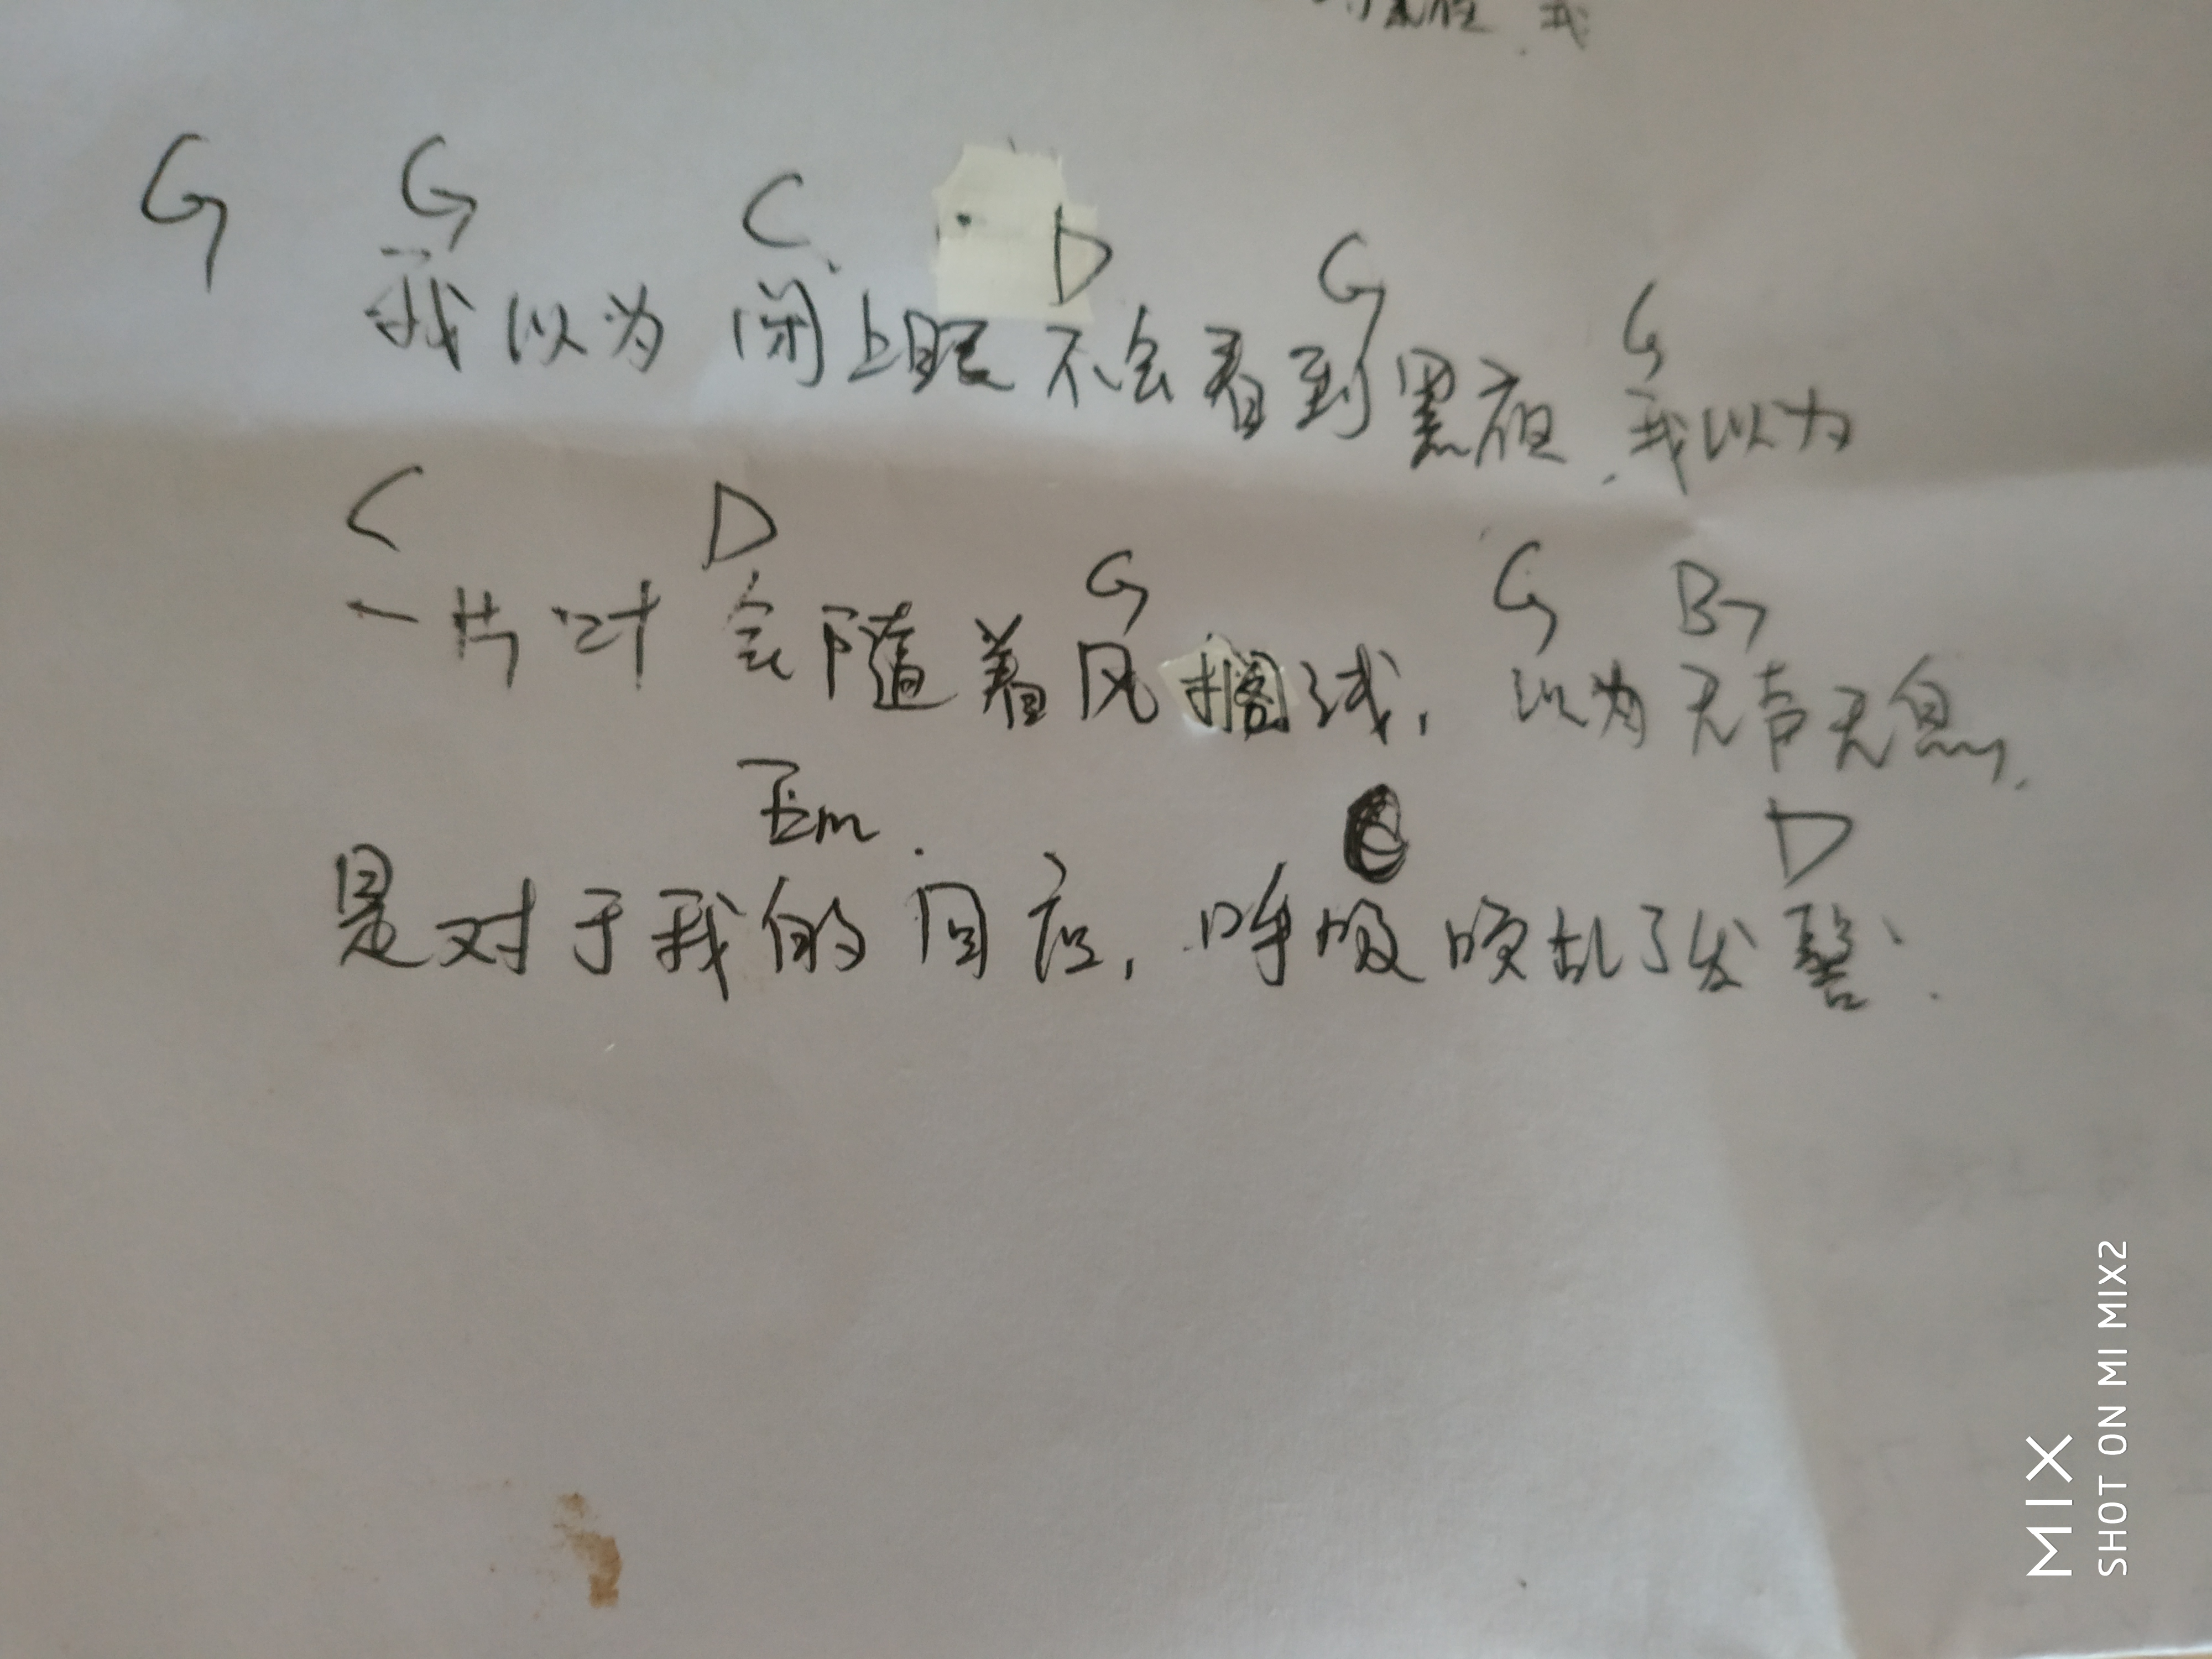 我
G G C D G G
我以为 闭上眼 不会看到黑夜，我以为
C D G G B7
一片叶 会随着风搁浅，以为无声无息，
Em C D
是对于我的回应，呼吸喷乱了发
MIX
SHOT ON MI MIX2